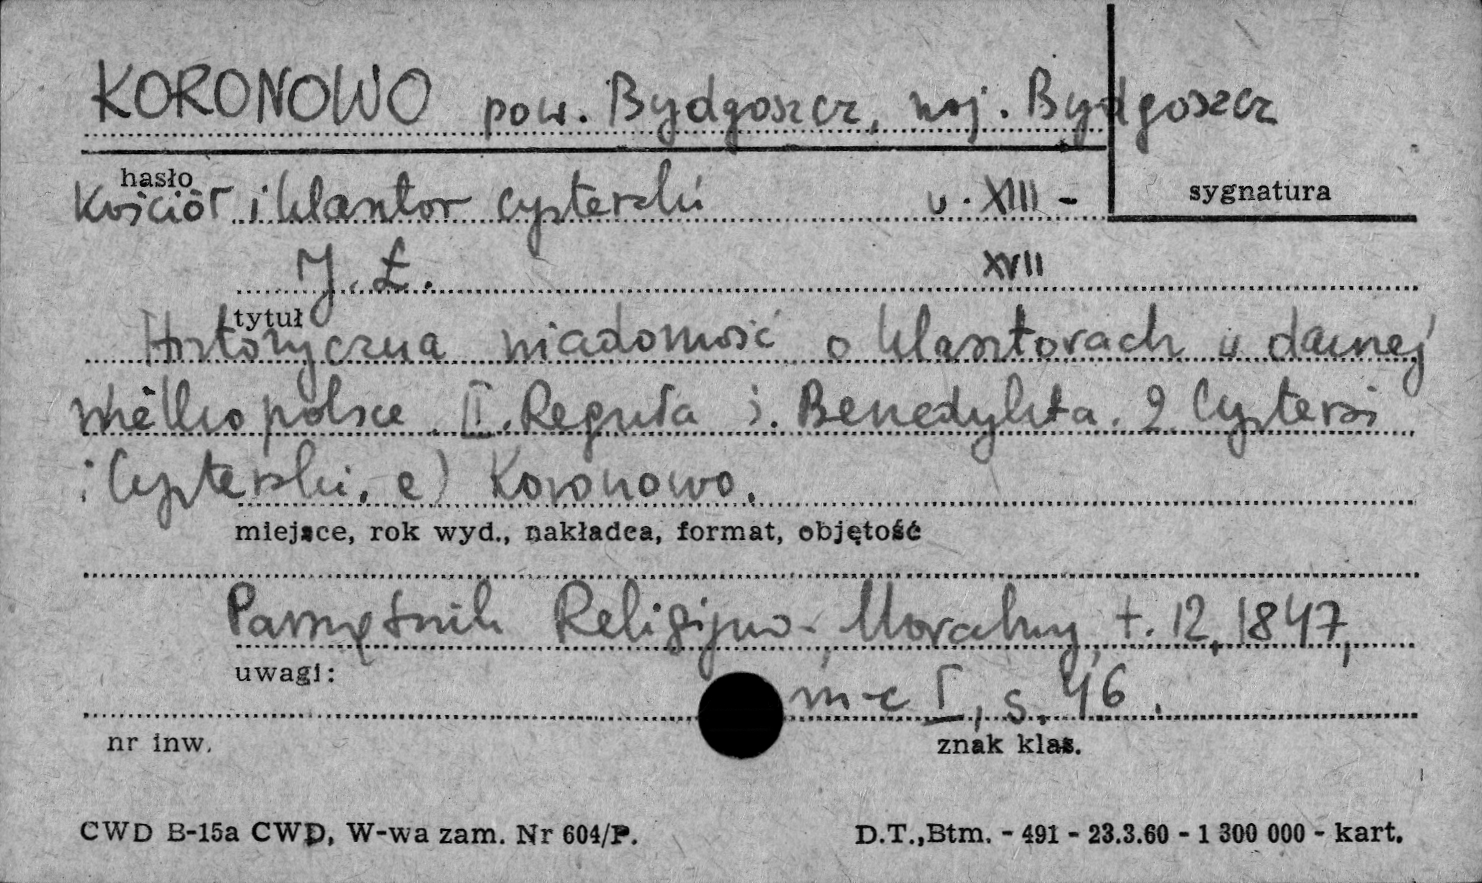 KORONOWO pow. Bydgoszcz, woj. Bydgoszcz
hasło
sygnatura
Kościół i klasztor cysterski w. XIII -
J. Ł. XVII
tytuł
Historyczna wiadomość o klasztorach w dawnej
Wielkopolsce. II. Reguła ś. Benedykta. 2. Cystersi
i Cysterski. e) Koronowo.
miejsce, rok wyd., nakładca, format, objętość
Pamiętnik Religijno-Moralny, t. 12, 1847,
uwagi:
m-c I, s. 46.
nr inw.
znak klas.
CWD B-15a CWD, W-wa zam. Nr 604/P.
D.T.,Btm. - 491 - 23.3.60 - 1 300 000 - kart.